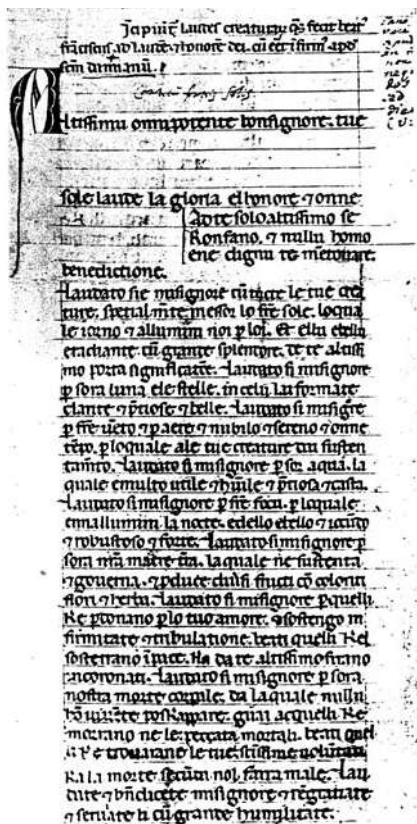 Incipiut Laudes creaturaru qs fecit beat'
franciscus ad laude & honore dei. cu eet ifirm' apd
scm damianu.
Altissimu omnipotente bonsignore. tue
sole laude la gloria elhonore & onne
Ad te solo altissimo se
Konfano. & nullu homo
ene dignu te metovare.
benedictione.
Laudato sie misignore cu tucte le tue crea
ture. spetialmte messor lo fre sole. loqual
e iorno & allumini noi p loi. Et ellu ebello
eradiante cu grande splendore. de te altissi
mo porta significatoe. Laudato si misignore
p sora luna ele stelle. in celu lai formate
clarite & ptiose & belle. Laudato si misigre
p fre veto & p aere & nubilo & sereno & onne
tepo. p loquale ale tue creature dai susten
tamto. Laudato si misignore p sor aqua. la
quale emulto utile & huile & ptiosa & casta.
Laudato si misignore p fre focu. p loquale
ennallumini la nocte. edello ebello & iocudo
& robustoso & forte. Laudato si misignore p
sora nra matre tra. laquale ne sustenta
& governa. & pduce diusi fructi co coloriti
flori & herba. Laudato si misignore p quelli
ke pdonano p lo tuo amore. & sostengo in
firmitate & tribulatione. beati quelli kel
sosterrano i pace. ka da te altissimo sirano
incoronati. Laudato si misignore p sora
nostra morte corpale. da laquale nullu
ho uiuete poskappare. guai acquelli ke
morrano ne le peccata mortali. beati quel
li ke trouarane le tue sctissime uoluntati.
ka la morte secuda nol farra male. Lau
date & bndicete misignore & rengratiate
& seruiate li cu grande humilitate.